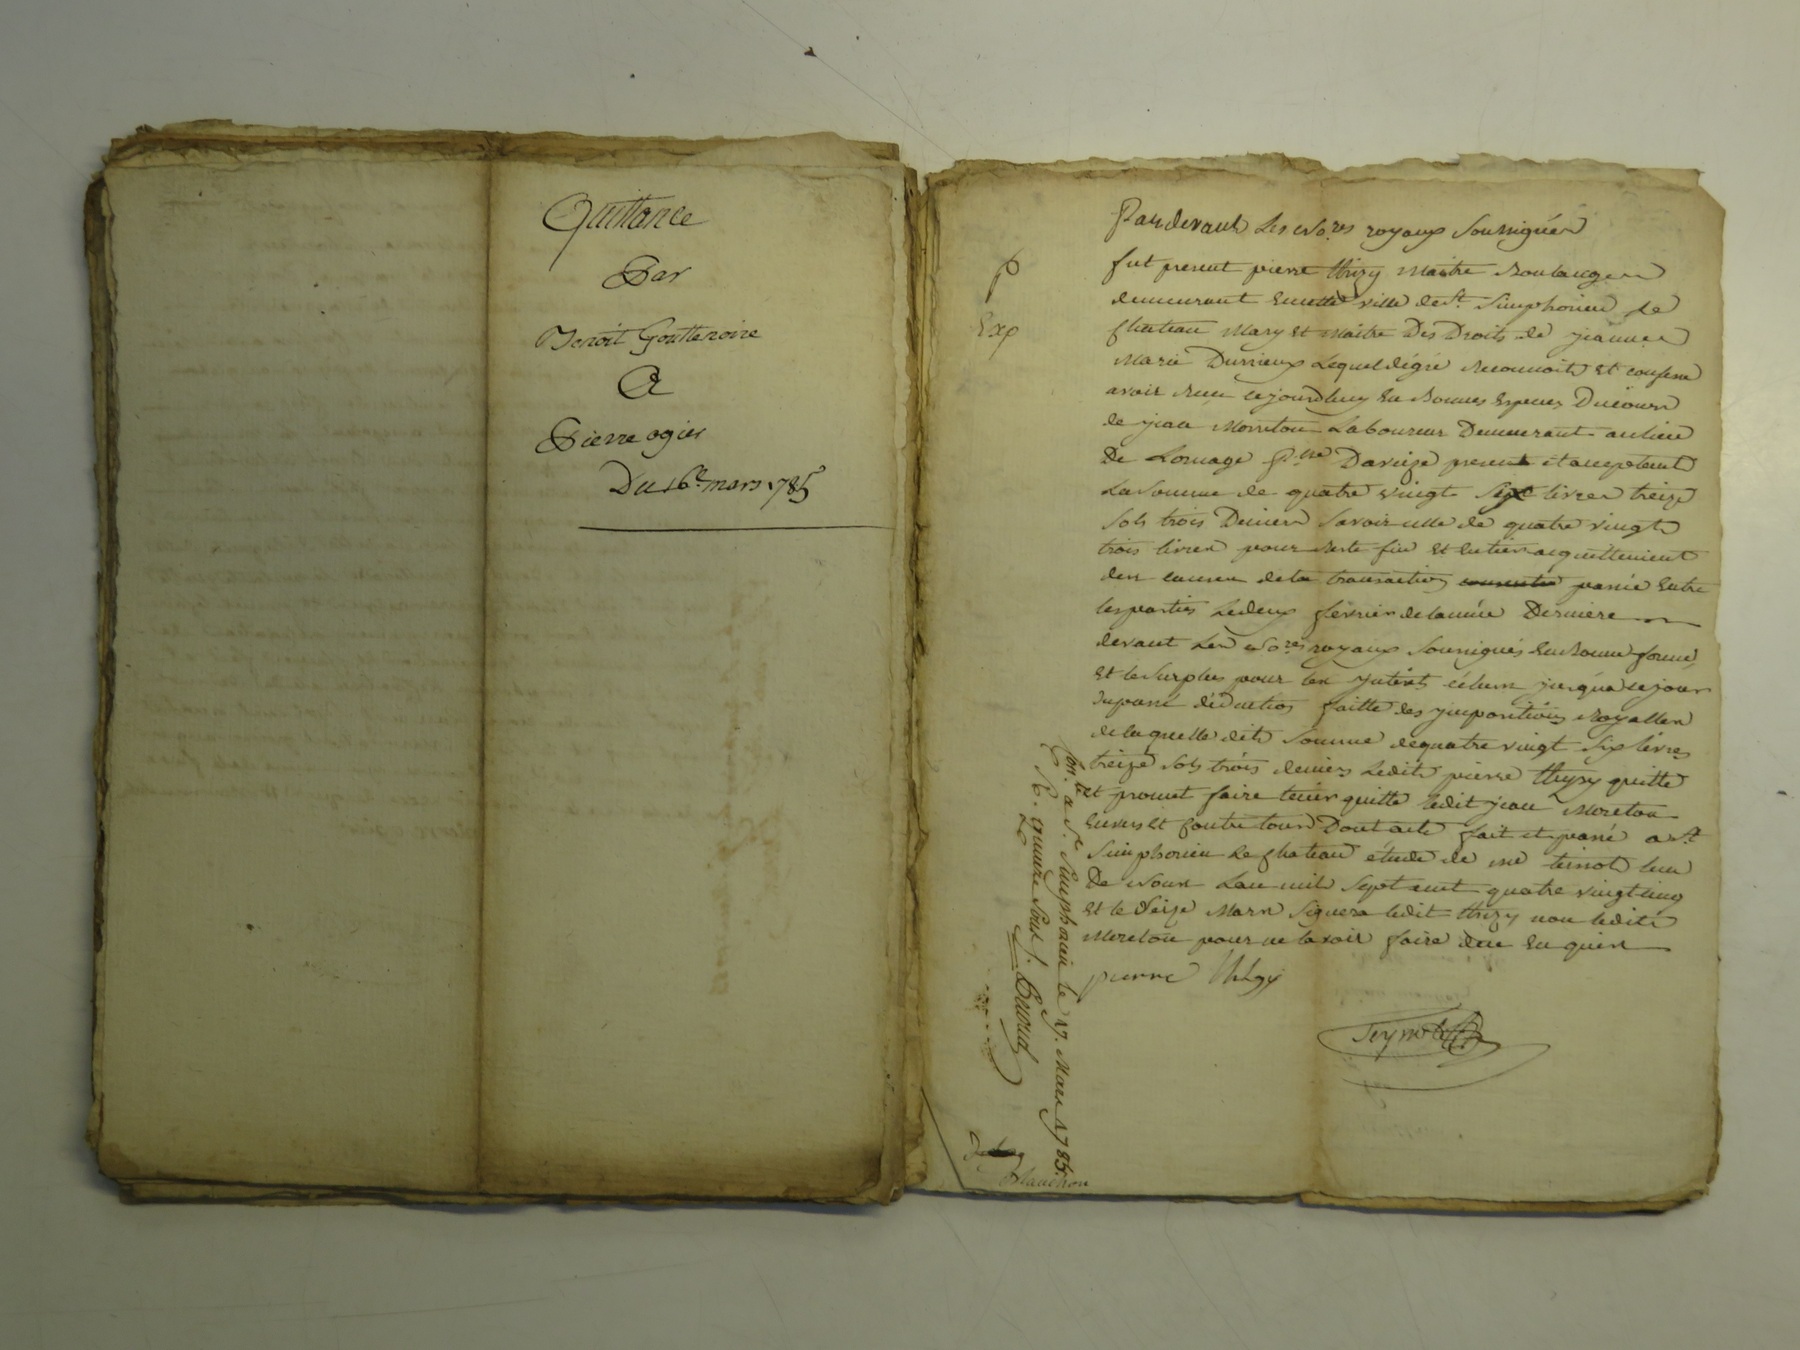 Quittance
Par
Benoit Gouttenoire
A
Pierre ogier
Du 16e. mars 1785
P
Exp
Pardevant Les No.res royaux Soussignés
fut present pierre thizy Maitre Boulanger
demeurant en cette ville de St. Simphorien le
Chateau Mary et Maitre Des Droits de jeanne
Marie Durrieux Lequel dégré Reconnoit et confesse
avoir Reçu cejourd'huy En Bonnes Especes Ducours
de jean Morreton Laboureur Demeurant au lieu
De Lornage P.sse Daveize present et acceptant
La Somme de quatre vingt Six livres treize
Sols trois Deniers Savoir celle de quatre vingt
trois livres pour Reste fin et Entier acquittement
des causes de la transaction passée Entre
les parties Le deux fevrier de l'année Derniere
devant Les No.res royaux Soussignés En Bonne forme
Et le Surplus pour les Interets échus jusqu'a ce jour
deduction faitte des jmpositions Royalles
de laquelle dite Somme de quatre vingt Six livres
treize Sols trois deniers Ledit pierre thizy quitte
et promet faire tenir quitte Ledit jean Moreton
Envers et Contre tous Dont acte fait et passé a St.
Simphorien Le Chateau étude de me un
De Nous L'an mil Sept cent quatre vingt cinq
Et le Seize Mars Signera ledit thizy non ledit
Moreton pour ne Savoir faire de ce Enquis
pierre thizy
Con.lé a St. Simphorien le 17. Mars 1785.
R. quinze Sous /.
Blanchon